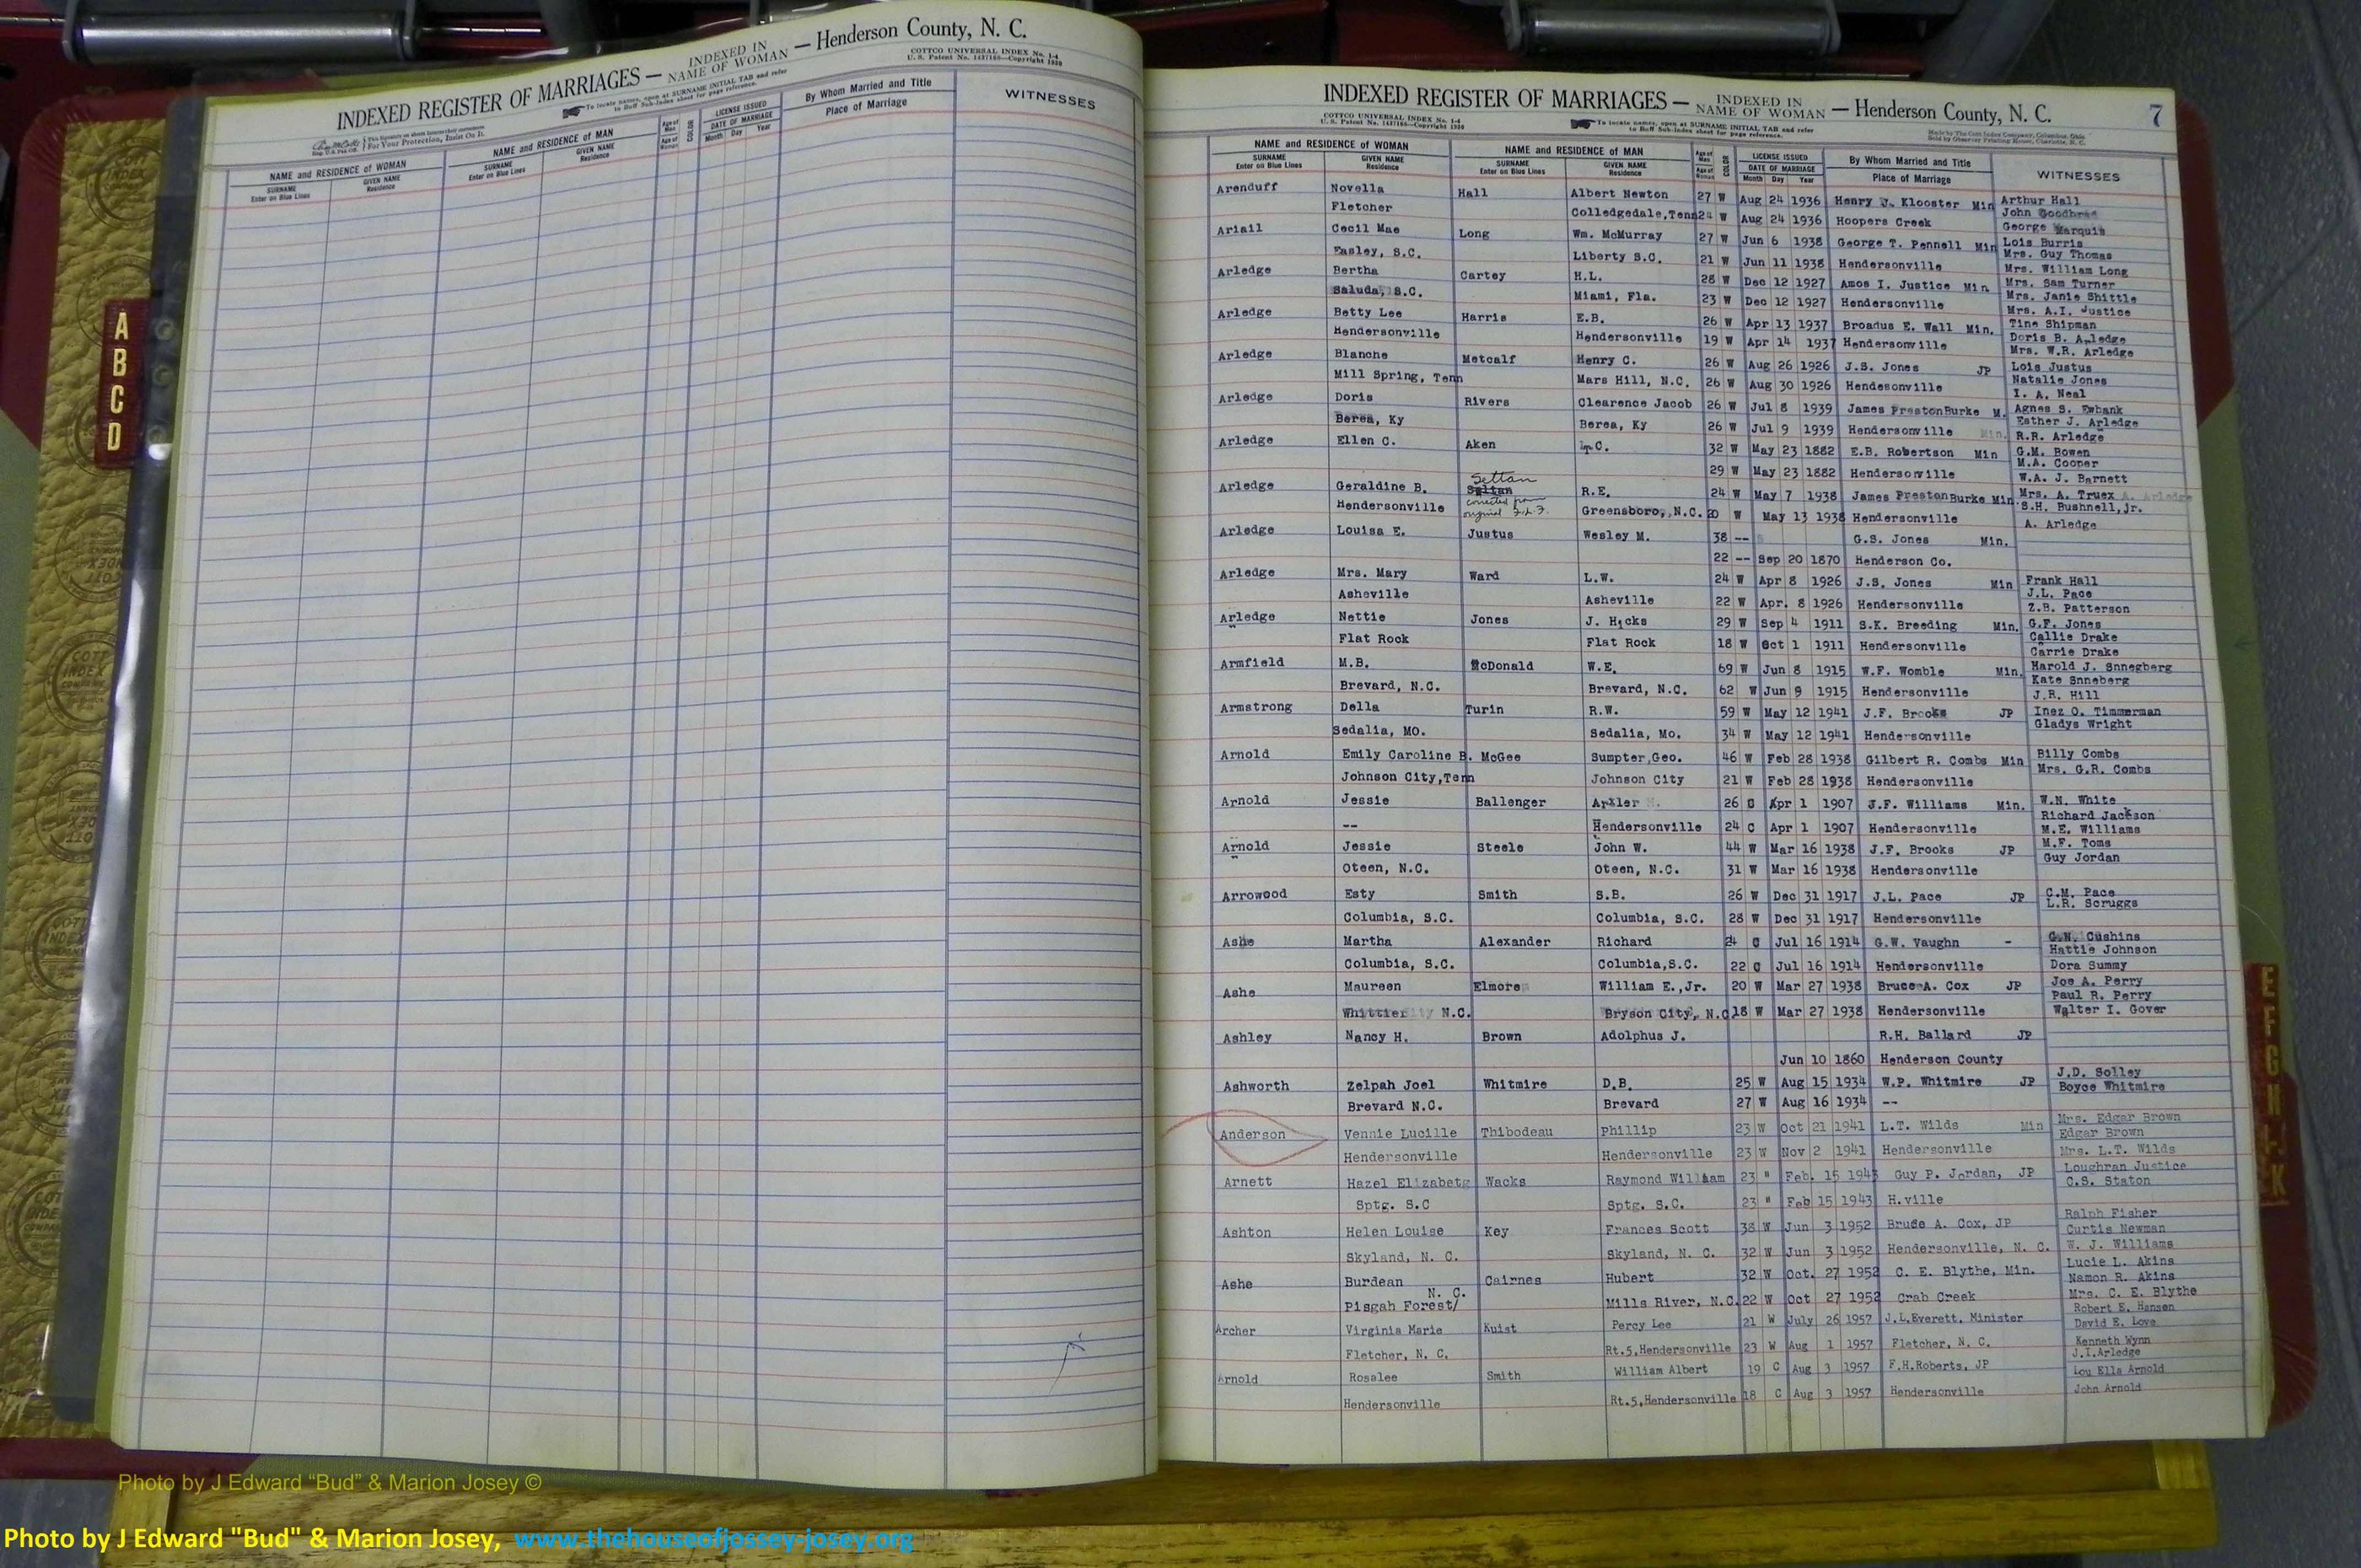 INDEXED REGISTER OF MARRIAGES — INDEXED IN NAME OF WOMAN — Henderson County, N. C.
COTTCO UNIVERSAL INDEX No. 1-4
To locate names, open at SURNAME INITIAL TAB and refer
to Buff Sub-Index sheet for page reference.
For Your Protection, Insist On It.
NAME and RESIDENCE of WOMAN NAME and RESIDENCE of MAN Age of Man Age of Woman COLOR LICENSE ISSUED DATE OF MARRIAGE By Whom Married and Title Place of Marriage WITNESSES
SURNAME Enter on Blue Lines GIVEN NAME Residence SURNAME Enter on Blue Lines GIVEN NAME Residence Month Day Year
A
B
C
D
INDEXED REGISTER OF MARRIAGES — INDEXED IN NAME OF WOMAN — Henderson County, N. C. 7
COTTCO UNIVERSAL INDEX No. 1-4
To locate names, open at SURNAME INITIAL TAB and refer
to Buff Sub-Index sheet for page reference.
NAME and RESIDENCE of WOMAN NAME and RESIDENCE of MAN Age of Man Age of Woman COLOR LICENSE ISSUED DATE OF MARRIAGE By Whom Married and Title Place of Marriage WITNESSES
SURNAME Enter on Blue Lines GIVEN NAME Residence SURNAME Enter on Blue Lines GIVEN NAME Residence Month Day Year
Arenduff Novella Hall Albert Newton 27 W Aug 24 1936 Henry J. Klooster Min Arthur Hall
Fletcher Colledgedale,Tenn 24 W Aug 24 1936 Hoopers Creek John
George Marquis
Ariail Cecil Mae Long Wm. McMurray 27 W Jun 6 1938 George T. Pennell Min Lois Burris
Mrs. Guy Thomas
Easley, S.C. Liberty S.C. 21 W Jun 11 1938 Hendersonville Mrs. William Long
Arledge Bertha Cartey H.L. 28 W Dec 12 1927 Amos I. Justice Min Mrs. Sam Turner
Saluda, S.C. Miami, Fla. 23 W Dec 12 1927 Hendersonville Mrs. Janie Shittle
Mrs. A.I. Justice
Arledge Betty Lee Harris E.B. 26 W Apr 13 1937 Broadus E. Wall Min. Tine Shipman
Hendersonville Hendersonville 19 W Apr 14 1937 Hendersonville Doris B. Arledge
Mrs. W.R. Arledge
Arledge Blanche Metcalf Henry C. 26 W Aug 26 1926 J.S. Jones JP Lois Justus
Mill Spring, Tenn Mars Hill, N.C. 26 W Aug 30 1926 Hendesonville Natalie Jones
I. A. Neal
Arledge Doris Rivers Clearence Jacob 26 W Jul 8 1939 James PrestonBurke M. Agnes S. Ewbank
Esther J. Arledge
Berea, Ky Berea, Ky 26 W Jul 9 1939 Hendersonville Min. R.R. Arledge
Arledge Ellen C. Aken L.C. 32 W May 23 1882 E.B. Robertson Min G.M. Bowen
M.A. Cooper
29 W May 23 1882 Hendersonville W.A. J. Barnett
Settan
Arledge Geraldine B. R.E. 24 W May 7 1938 James PrestonBurke Min. Mrs. A. Truex
Hendersonville corrected from original Greensboro, N.C. 20 W May 13 1938 Hendersonville S.H. Bushnell,jr.
A. Arledge
Arledge Louisa E. Justus Wesley M. 38 -- G.S. Jones Min.
22 -- Sep 20 1870 Henderson Co.
Arledge Mrs. Mary Ward L.W. 24 W Apr 8 1926 J.S. Jones Min Frank Hall
J.L. Pace
Asheville Asheville 22 W Apr. 8 1926 Hendersonville Z.B. Patterson
Arledge Nettie Jones J. Hicks 29 W Sep 4 1911 S.K. Breeding Min. G.F. Jones
Callie Drake
Flat Rock Flat Rock 18 W Oct 1 1911 Hendersonville Carrie Drake
Armfield M.B. McDonald W.E. 69 W Jun 8 1915 W.F. Womble Min. Harold J. Snnegberg
Kate Snneberg
Brevard, N.C. Brevard, N.C. 62 W Jun 9 1915 Hendersonville J.R. Hill
Armstrong Della Turin R.W. 59 W May 12 1941 J.F. Brooks JP Inez O. Timmerman
Gladys Wright
Sedalia, MO. Sedalia, Mo. 34 W May 12 1941 Hendersonville
Arnold Emily Caroline B. McGee Sumpter,Geo. 46 W Feb 28 1938 Gilbert R. Combs Min Billy Combs
Johnson City,Tenn Johnson City 21 W Feb 28 1938 Hendersonville Mrs. G.R. Combs
Arnold Jessie Ballenger 26 C Apr 1 1907 J.F. Williams Min. W.N. White
Richard Jackson
-- Hendersonville 24 C Apr 1 1907 Hendersonville M.E. Williams
Arnold Jessie Steele John W. 44 W Mar 16 1938 J.F. Brooks JP M.F. Toms
Guy Jordan
Oteen, N.C. Oteen, N.C. 31 W Mar 16 1938 Hendersonville
Arrowood Esty Smith S.B. 26 W Dec 31 1917 J.L. Pace JP C.M. Pace
L.R. Scruggs
Columbia, S.C. Columbia, S.C. 28 W Dec 31 1917 Hendersonville
Ashe Martha Alexander Richard 24 C Jul 16 1914 G.W. Vaughn - G.N. Cushins
Hattie Johnson
Columbia, S.C. Columbia,S.C. 22 C Jul 16 1914 Hendersonville Dora Summy
Ashe Maureen Elmore William E.,Jr. 20 W Mar 27 1938 Bruce A. Cox JP Joe A. Perry
Paul R. Perry
Whittier N.C. Bryson City, N.C. 18 W Mar 27 1938 Hendersonville Walter I. Gover
Ashley Nancy H. Brown Adolphus J. R.H. Ballard JP
Jun 10 1860 Henderson County
Ashworth Zelpah Joel Whitmire D.B. 25 W Aug 15 1934 W.P. Whitmire JP J.D. Solley
Boyce Whitmire
Brevard N.C. Brevard 27 W Aug 16 1934 --
Anderson Vennie Lucille Thibodeau Phillip 23 W Oct 21 1941 L.T. Wilds Min Mrs. Edgar Brown
Edgar Brown
Hendersonville Hendersonville 23 W Nov 2 1941 Hendersonville Mrs. L.T. Wilds
Arnett Hazel Elizabetg Wacks Raymond William 23 " Feb. 15 1943 Guy P. Jordan, JP Loughran Justice
C.S. Staton
Sptg. S.C Sptg. S.C. 23 " Feb 15 1943 H.ville
Ashton Helen Louise Key Frances Scott 38 W Jun 3 1952 Bruce A. Cox, JP Ralph Fisher
Curtis Newman
Skyland, N. C. Skyland, N. C. 32 W Jun 3 1952 Hendersonville, N. C. W. J. Williams
Ashe Burdean Cairnes Hubert 32 W Oct. 27 1952 C. E. Blythe, Min. Lucie L. Akins
Namon R. Akins
Pisgah Forest/ N. C. Mills River, N.C. 22 W Oct 27 1952 Crab Creek Mrs. C. E. Blythe
Archer Virginia Marie Kuist Percy Lee 21 W July 26 1957 J.L.Everett, Minister Robert E. Hansen
David E. Love
Fletcher, N. C. Rt.5,Hendersonville 23 W Aug 1 1957 Fletcher, N. C. Kenneth Wynn
Arnold Rosalee Smith William Albert 19 C Aug 3 1957 F.H.Roberts, JP J.I.Arledge
Lou Ella Arnold
Hendersonville Rt.5,Hendersonville 18 C Aug 3 1957 Hendersonville John Arnold
Photo by J Edward “Bud” & Marion Josey ©
Photo by J Edward "Bud" & Marion Josey, www.thehouseofjossey-josey.org